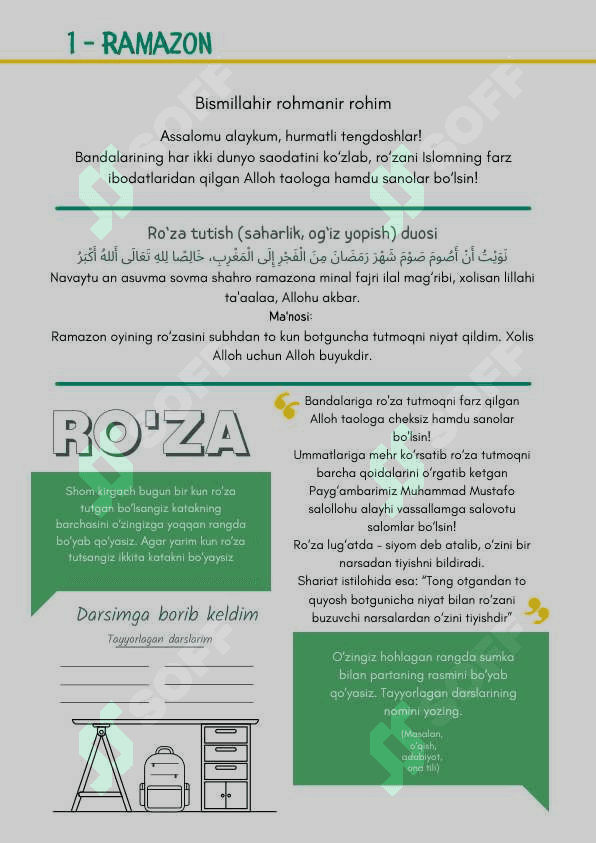 1 - RAMAZON
Bismillahir rohmanir rohim
Assalomu alaykum, hurmatli tengdoshlar!
Bandalarining har ikki dunyo saodatini ko‘zlab, ro‘zani Islomning farz
ibodatlaridan qilgan Alloh taologa hamdu sanolar bo‘lsin!
Ro‘za tutish (saharlik, og‘iz yopish) duosi
نَوَيْتُ أَنْ أَصُومَ صَوْمَ شَهْرَ رَمَضَانَ مِنَ الْفَجْرِ إِلَى الْمَغْرِبِ، خَالِصًا لِلهِ تَعَالَى أَللهُ أَكْبَرُ
Navaytu an asuvma sovma shahro ramazona minal fajri ilal mag‘ribi, xolisan lillahi
ta'aalaa, Allohu akbar.
Ma'nosi:
Ramazon oyining ro‘zasini subhdan to kun botguncha tutmoqni niyat qildim. Xolis
Alloh uchun Alloh buyukdir.
RO'ZA
Shom kirgach bugun bir kun ro‘za
tutgan bo‘lsangiz katakning
barchasini o‘zingizga yoqqan rangda
bo‘yab qo‘yasiz. Agar yarim kun ro‘za
tutsangiz ikkita katakni bo‘yaysiz
Darsimga borib keldim
Tayyorlagan darslarim
Bandalariga ro‘za tutmoqni farz qilgan
Alloh taologa cheksiz hamdu sanolar
bo‘lsin!
Ummatlariga mehr ko‘rsatib ro‘za tutmoqni
barcha qoidalarini o‘rgatib ketgan
Payg‘ambarimiz Muhammad Mustafo
salollohu alayhi vassallamga salovotu
salomlar bo‘lsin!
Ro‘za lug‘atda - siyom deb atalib, o‘zini bir
narsadan tiyishni bildiradi.
Shariat istilohida esa: “Tong otgandan to
quyosh botgunicha niyat bilan ro‘zani
buzuvchi narsalardan o‘zini tiyishdir”
O‘zingiz hohlagan rangda sumka
bilan partaning rasmini bo‘yab
qo‘yasiz. Tayyorlagan darslarining
nomini yozing.
(Masalan,
o‘qish,
adabiyot,
ona tili)
SOFF
SOFF
SOFF
SOFF
SOFF
SOFF